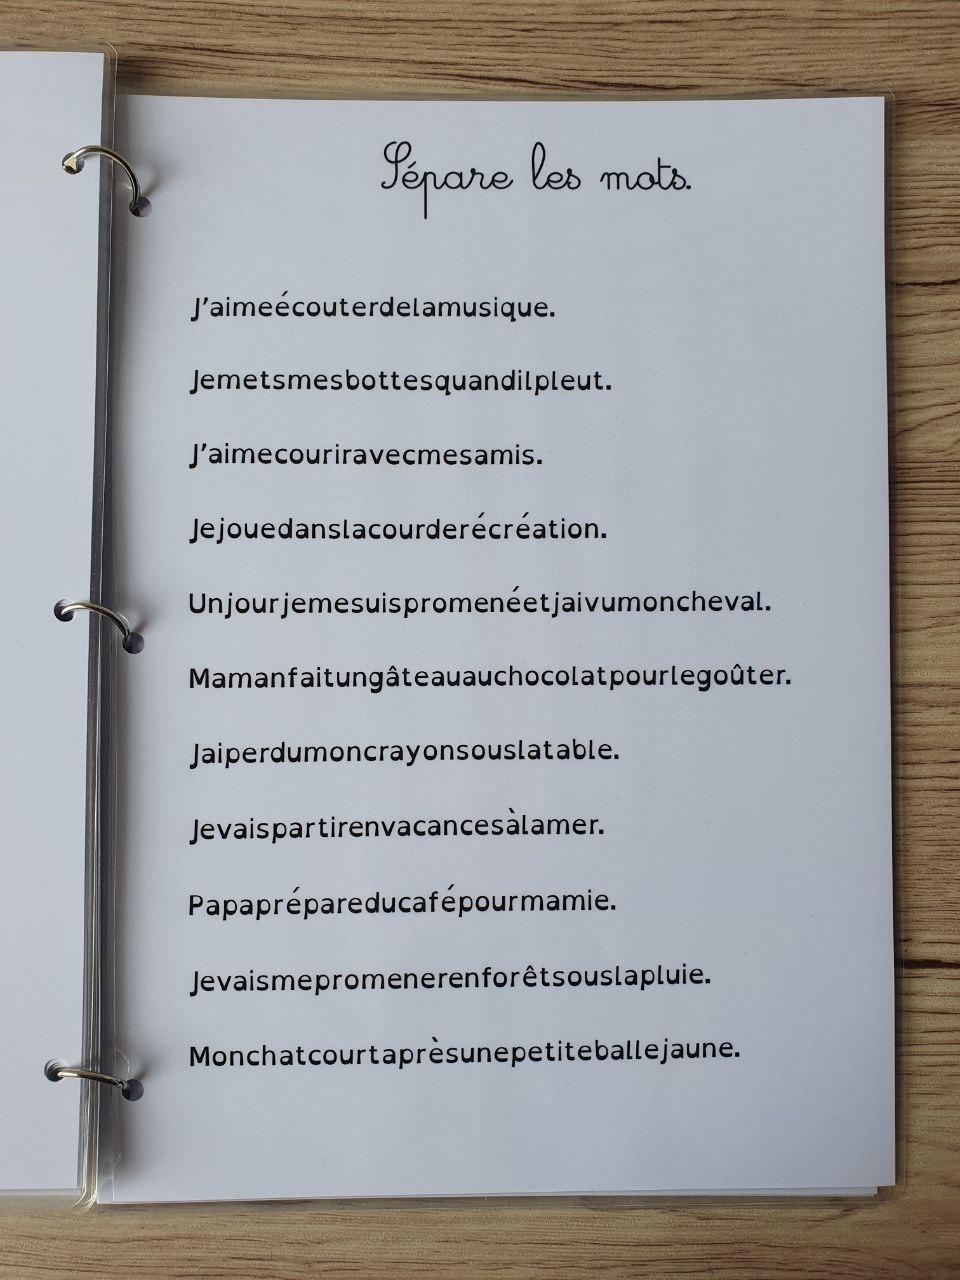 Sépare les mots.
J'aimeécouterdelamusique.
Jemetsmesbottesquandilpleut.
J'aimecouriravecmesamis.
Jejouedanslacourderécréation.
Unjourjemesuispromenéetjaivumoncheval.
Mamanfaitungâteauauchocolatpourlegoûter.
Jaiperdumoncrayonsouslatable.
Jevaispartirenvacancesàlamer.
Papaprépareducafépourmamie.
Jevaismepromenerenforêtsouslapluie.
Monchatcourtaprèsunepetiteballejaune.